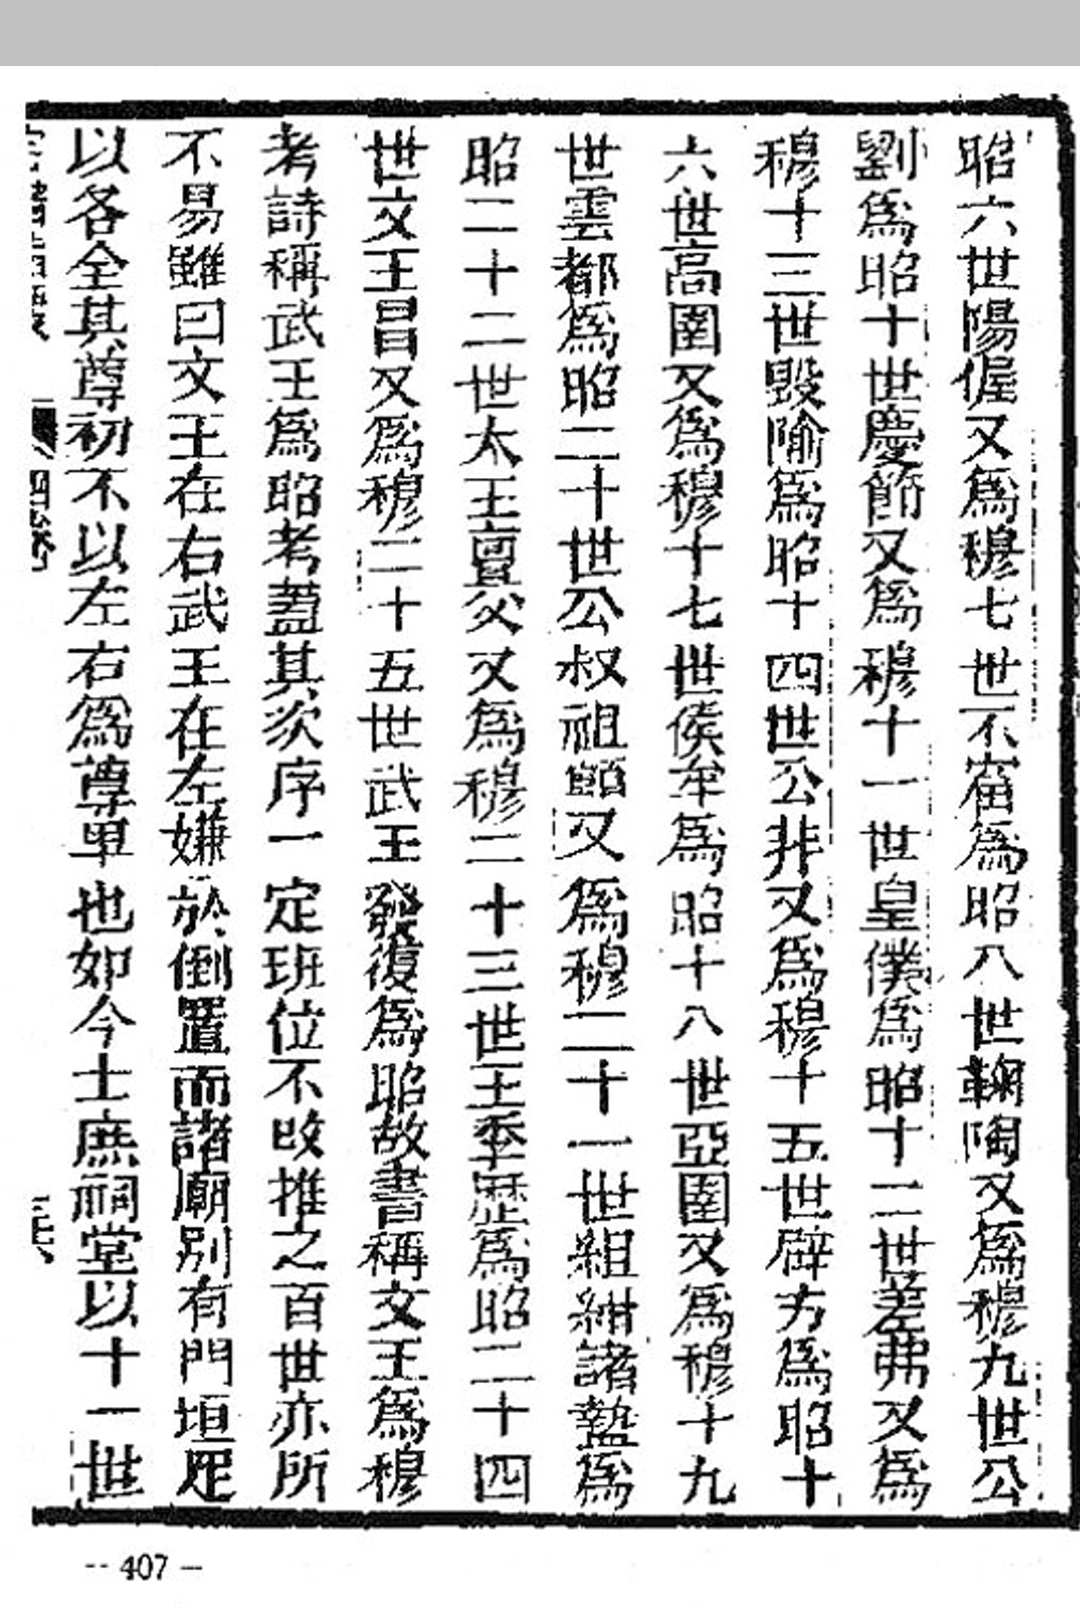 昭六世陽偓又爲穆七世不窋爲昭八世鞠陶又爲穆九世公
劉爲昭十世慶節又爲穆十一世皇僕爲昭十二世差弗又爲
穆十三世毀隃爲昭十四世公非又爲穆十五世辟方爲昭十
六世高圉又爲穆十七世侯牟爲昭十八世亞圉又爲穆十九
世雲都爲昭二十世公叔祖𩔖又爲穆二十一世組紺諸盩爲
昭二十二世太王亶父又爲穆二十三世王季歷爲昭二十四
世文王昌又爲穆二十五世武王發復爲昭故書稱文王爲穆
考詩稱武王爲昭考蓋其次序一定班位不改推之百世亦所
不易雖曰文王在右武王在左嫌於倒置而諸廟別有門垣足
以各全其尊初不以左右爲尊卑也如今士庶祠堂以十一世
-- 407 --